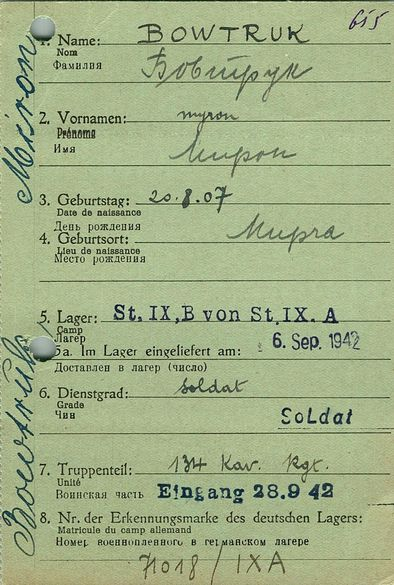 615
1. Name: BOWTRUK
Nom
Фамилия Бовтрук
2. Vornamen: myron
Prénoms
Имя Мирон
3. Geburtstag: 20.8.07
Date de naissance
День рождения
4. Geburtsort: Мирча
Lieu de naissance
Место рождения
5. Lager: St. IX, B von St. IX. A
Camp
Лагерь
5a. Im Lager eingeliefert am: 6. Sep. 1942
Доставлен в лагерь (число)
6. Dienstgrad: Soldat
Grade
Чин Soldat
7. Truppenteil: 134 Kav. Rgt.
Unité
Воинская часть Eingang 28.9 42
8. Nr. der Erkennungsmarke des deutschen Lagers:
Matricule du camp allemand
Номер военнопленного в германском лагере
71018 / IXA
Bowtruk Miron